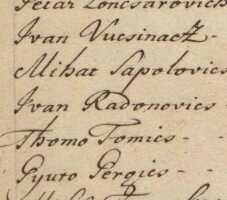 Petar Loncsarovich
Ivan Vucsinacz -
Mihat Sapolovics
Ivan Radonovics -
Thomo Tomics - -
Gyuro Gergics - -